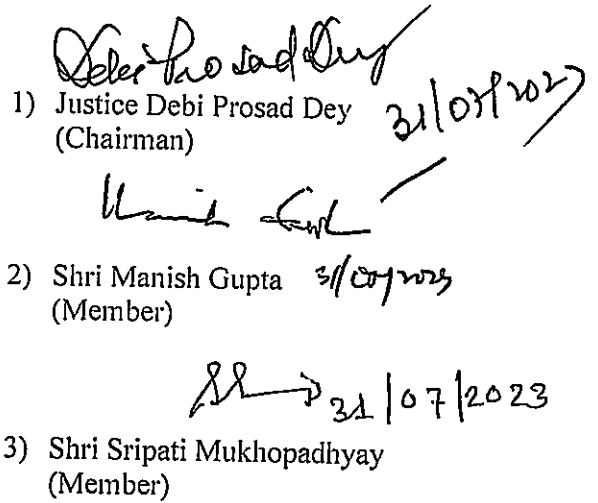 Debi Prosad Dey
1) Justice Debi Prosad Dey 31/07/2023
(Chairman)
2) Shri Manish Gupta
(Member)
31/07/2023
3) Shri Sripati Mukhopadhyay
(Member)